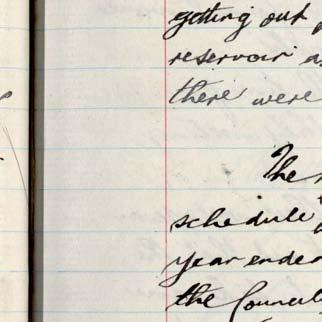 getting out
reservoir
there were
The
schedule
year ended
the Council